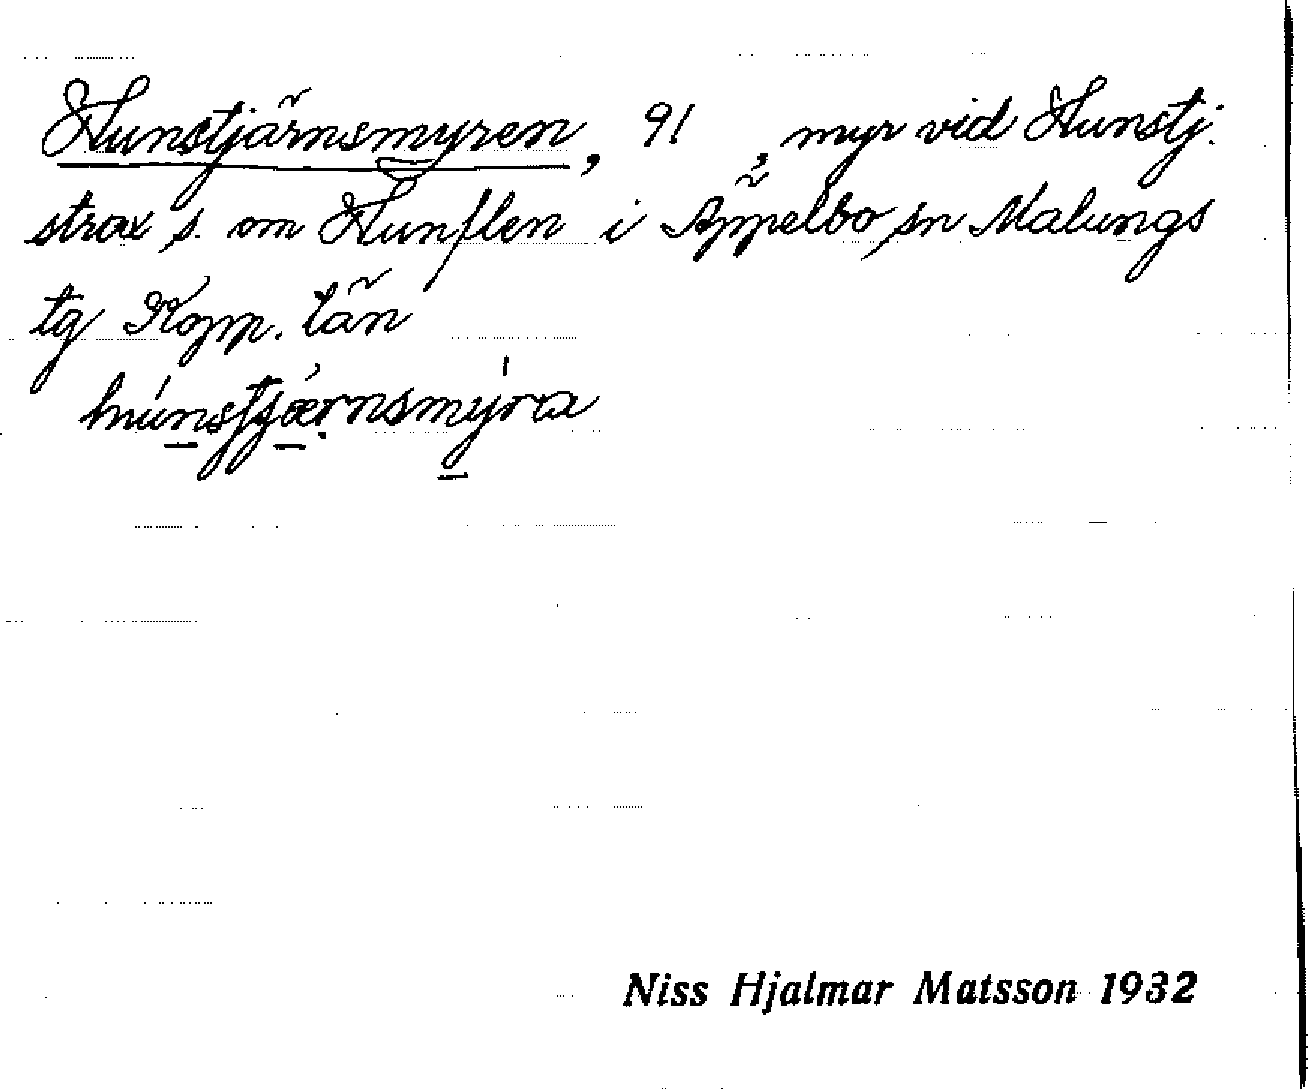 Hunstjärnsmyren, 91 , myr vid Hunstj.
strax s. om Hunflen i Äppelbo sn Malungs
tg Kopp. län
húnstjǽrnsmýra
Niss Hjalmar Matsson 1932